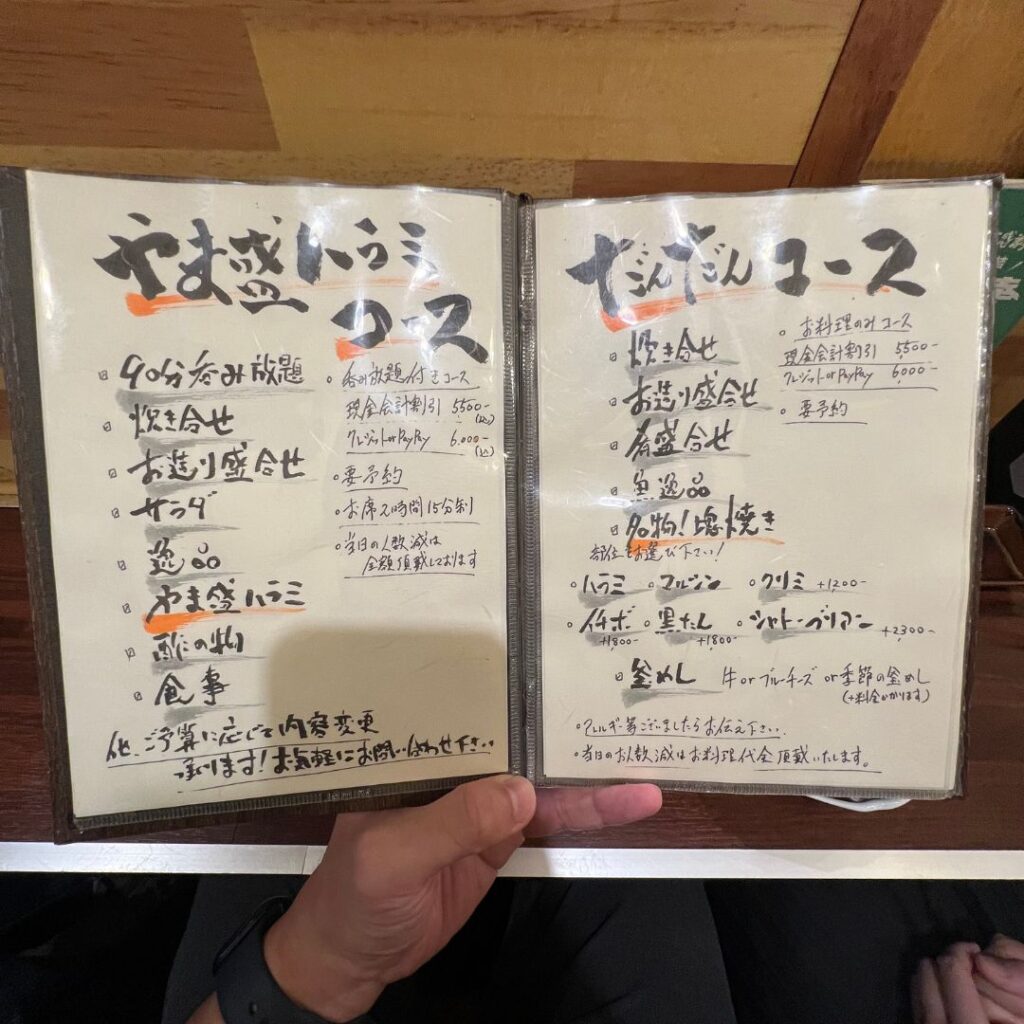 やま盛ハラミ
コース
90分呑み放題
炊き合せ
お造り盛合せ
サラダ
逸品
やま盛ハラミ
酢の物
食事
。呑み放題付きコース
現金会計割引 5500-
(込)
クレジットorPayPay 6,000-
(込)
。要予約
。お席2時間15分制
。当日の人数減は
全額頂戴しております
他、ご予算に応じて内容変更
承ります!お気軽にお問い合わせ下さい
だんだんコース
炊き合せ
お造り盛合せ
肴盛合せ
魚逸品
名物!塊焼き
部位をお選び下さい!
。ハラミ 。マルシン 。クリミ +1200-
。イチボ 。黒たん 。シャトーブリアン +2300-
+1800- +1800-
釜めし 牛orブルーチーズor季節の釜めし
(+料金かかります)
。お料理のみコース
現金会計割引 5500-
クレジットorPayPay 6,000-
。要予約
。アレルギー等ございましたらお伝え下さい.
。当日のお人数減はお料理代全頂戴いたします。